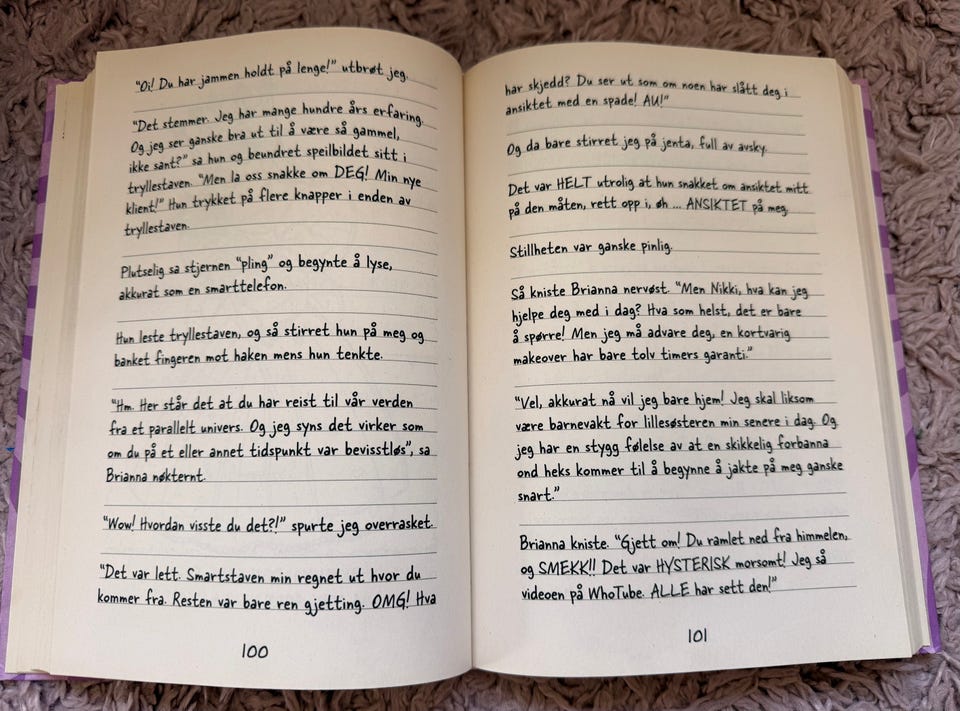 "Oi! Du har jammen holdt på lenge!" utbrøt jeg.
"Det stemmer. Jeg har mange hundre års erfaring.
Og jeg ser ganske bra ut til å være så gammel,
ikke sant?" sa hun og beundret speilbildet sitt i
tryllestaven. "Men la oss snakke om DEG! Min nye
klient!" Hun trykket på flere knapper i enden av
tryllestaven.
Plutselig sa stjernen "pling" og begynte å lyse,
akkurat som en smarttelefon.
Hun leste tryllestaven, og så stirret hun på meg og
banket fingeren mot haken mens hun tenkte.
"Hm. Her står det at du har reist til vår verden
fra et parallelt univers. Og jeg syns det virker som
om du på et eller annet tidspunkt var bevisstløs", sa
Brianna nøkternt.
"Wow! Hvordan visste du det?!" spurte jeg overrasket.
"Det var lett. Smartstaven min regnet ut hvor du
kommer fra. Resten var bare ren gjetting. OMG! Hva
100
har skjedd? Du ser ut som om noen har slått deg i
ansiktet med en spade! AU!"
Og da bare stirret jeg på jenta, full av avsky.
Det var HELT utrolig at hun snakket om ansiktet mitt
på den måten, rett opp i, øh ... ANSIKTET på meg.
Stillheten var ganske pinlig.
Så kniste Brianna nervøst. "Men Nikki, hva kan jeg
hjelpe deg med i dag? Hva som helst, det er bare
å spørre! Men jeg må advare deg, en kortvarig
makeover har bare tolv timers garanti."
"Vel, akkurat nå vil jeg bare hjem! Jeg skal liksom
være barnevakt for lillesøsteren min senere i dag. Og
jeg har en stygg følelse av at en skikkelig forbanna
ond heks kommer til å begynne å jakte på meg ganske
snart."
Brianna kniste. "Gjett om! Du ramlet ned fra himmelen,
og SMEKK!! Det var HYSTERISK morsomt! Jeg så
videoen på WhoTube. ALLE har sett den!"
101